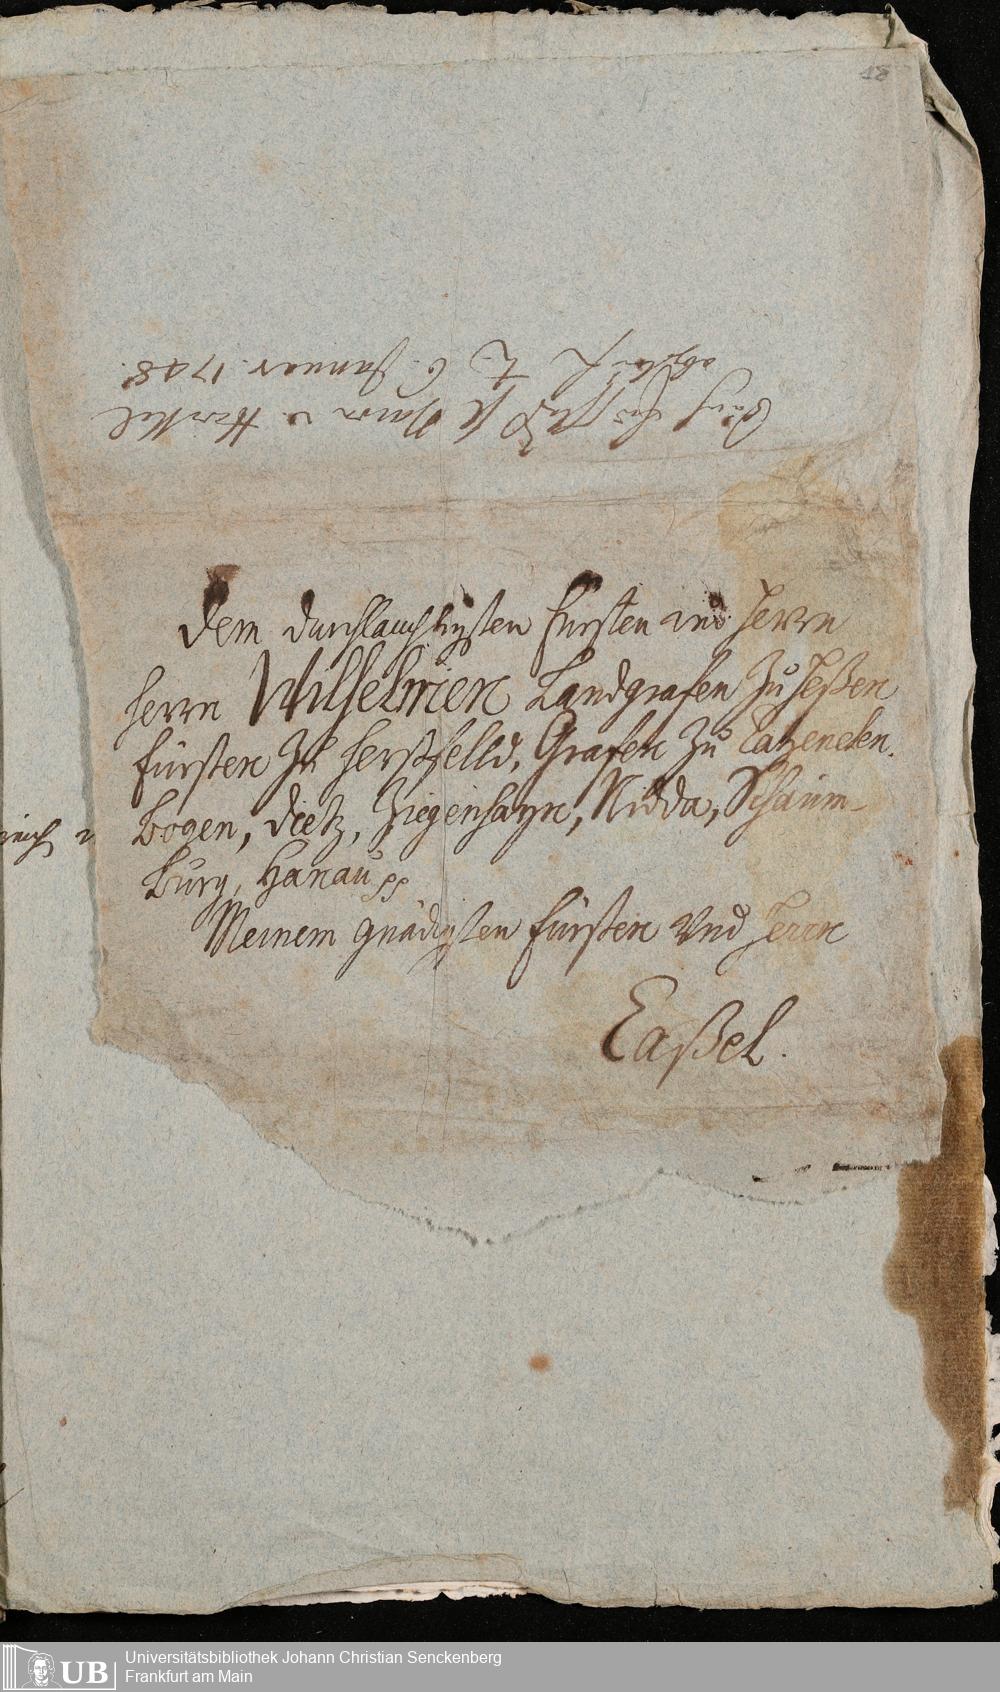 18
6. Januar. 1748.
Dem durchlauchtigsten Fürsten und Herrn
Herrn Wilhelmen Landgrafen Zu Heßen
Fürsten Zu Herßfelld, Grafen Zu Catzenelen.
Bogen, Dietz, Ziegenhayn, Nidda, Schaum-
Burg, Hanau pp
Meinem gnädigsten Fürsten Und Herrn
Caßel.
UB Universitätsbibliothek Johann Christian Senckenberg
Frankfurt am Main